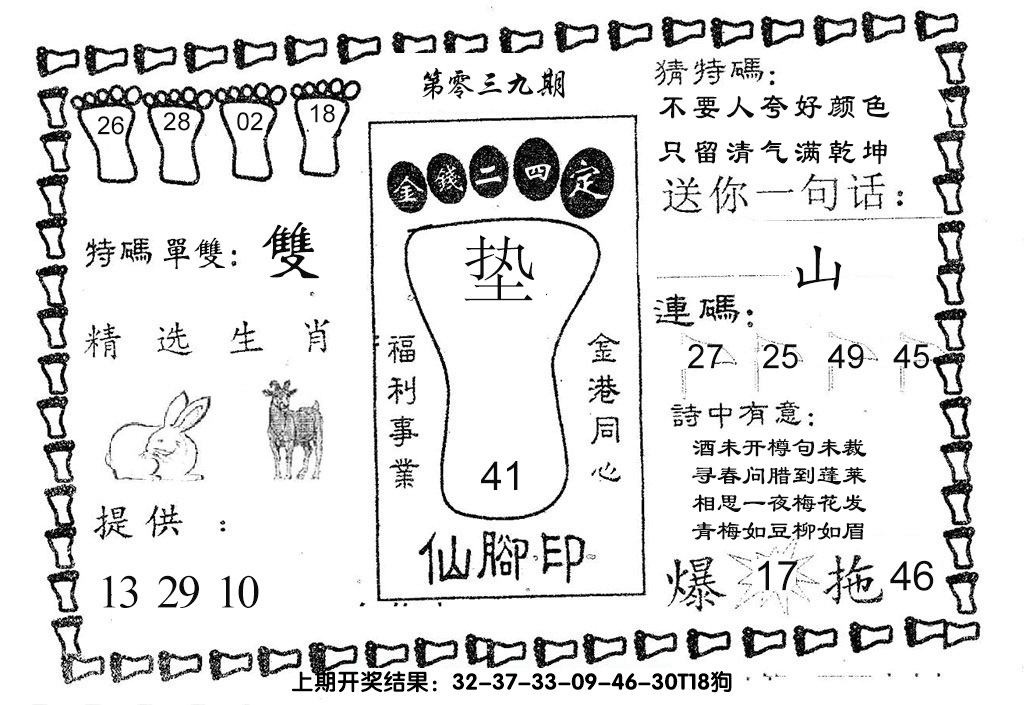 第零三九期
26 28 02 18
特碼單雙：雙
精选生肖
提供：
13 29 10
金錢二四定
垫
福利事業
金港同心
41
仙腳印
猜特碼：
不要人夸好颜色
只留清气满乾坤
送你一句话：
山
連碼：
27 25 49 45
詩中有意：
酒未开樽句未裁
寻春问腊到蓬莱
相思一夜梅花发
青梅如豆柳如眉
爆 17 拖 46
上期开奖结果：32-37-33-09-46-30T18狗